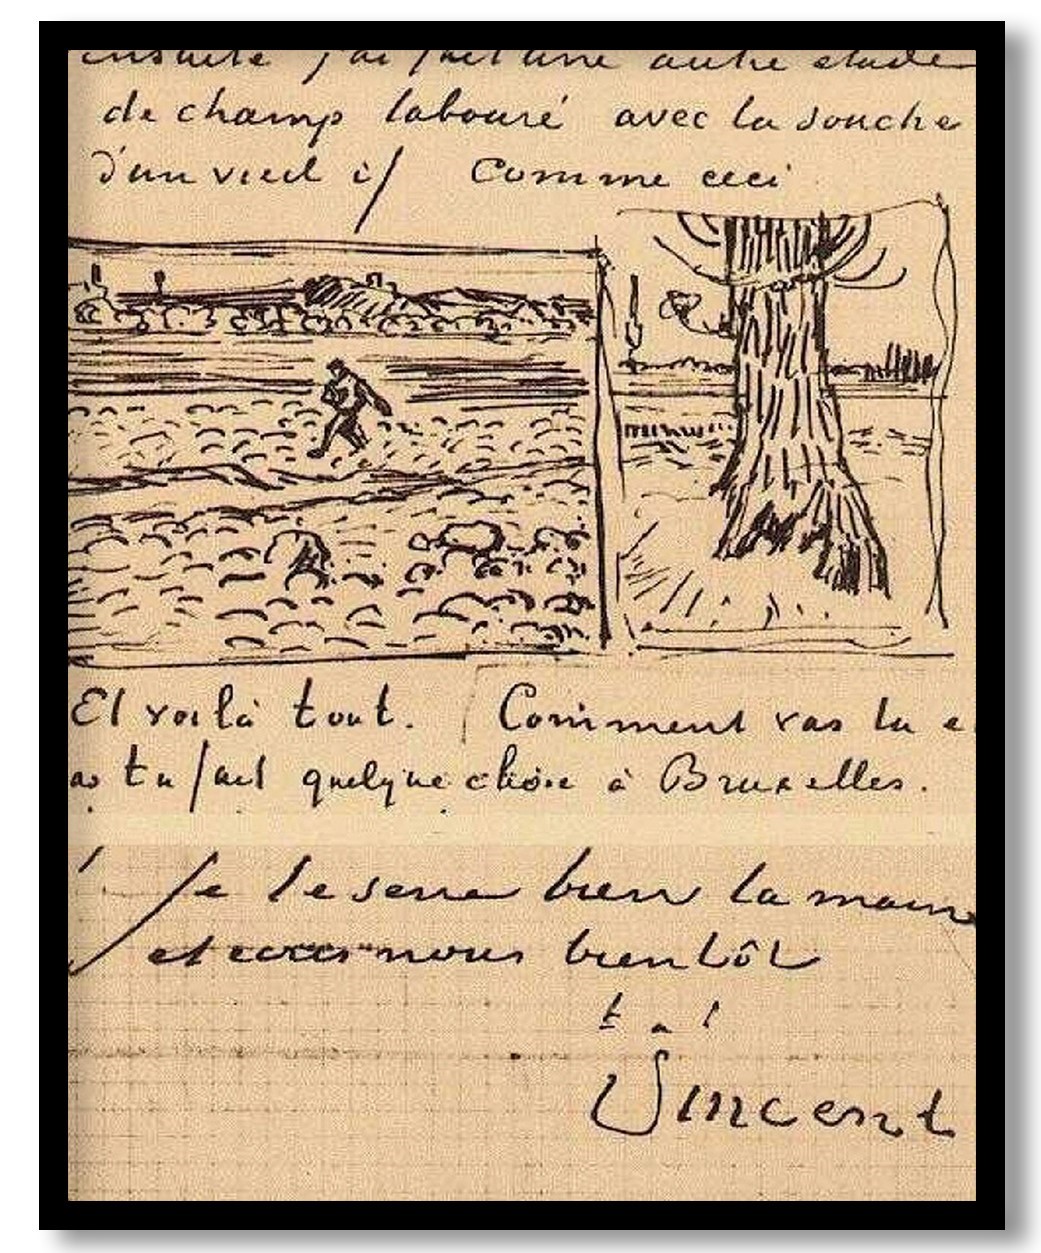 ensuite j'ai fait une autre etude
de champ labouré avec la souche
d'un vieil if Comme ceci
Et voilà tout. Comment vas tu e
as tu fait quelque chose à Bruxelles.
Je te serre bien la main
et nous bientôt
t a t
Vincent